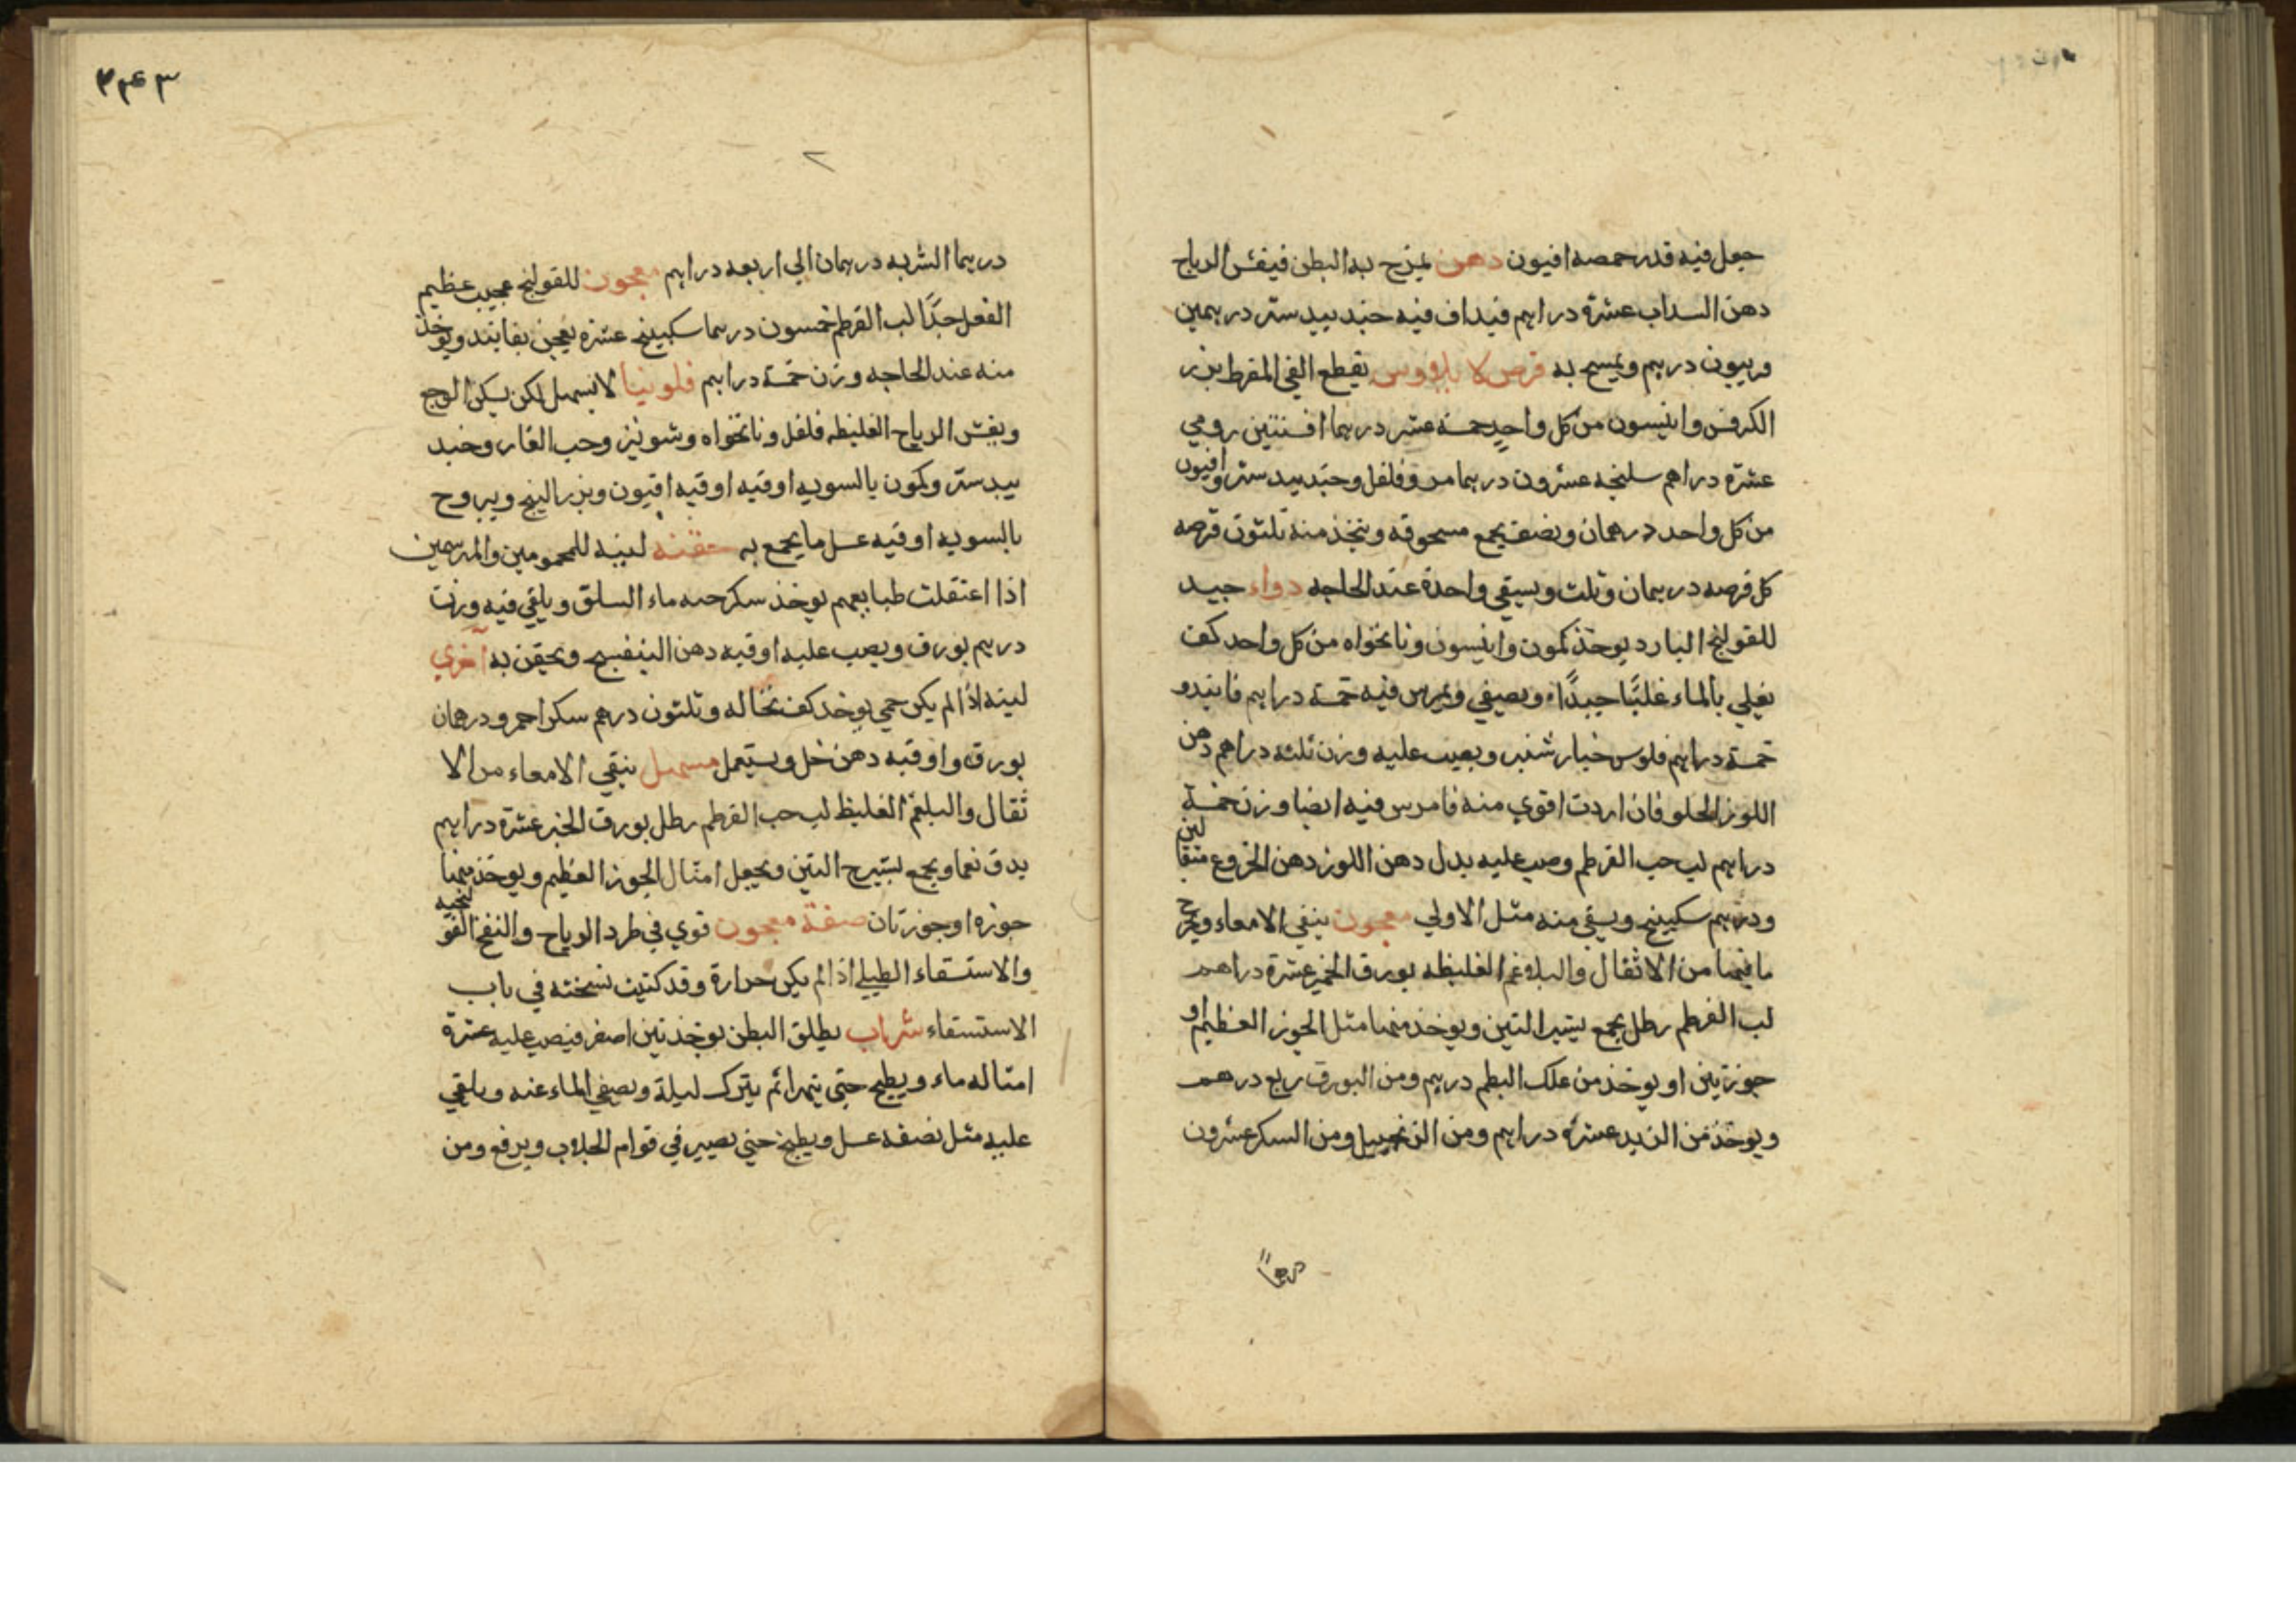 جعل فيه قدر حمصه افيون دهن يمزج به البطن فيفش الرياح
دهن السداب عشرة دراهم فيداف فيه جندبيدستر درهمين
وربيون درهم ويمسح به قرص يقطع القي المفرط بزر
الكرفس وانيسون من كل واحد خمسة عشر درهما افسنتين رومي
عشرة دراهم سليخه عشرون درهما مر وفلفل وجندبيدستر وافيون
من كل واحد درهمان ونصف يجمع مسحوقه ويتخذ منه ثلثون قرصه
كل قرصه درهمان وثلث ويسقي واحدة عند الحاجه دواء جيد
للقولنج البارد يوخذ كمون وانيسون ونانخواه من كل واحد كف
يغلي بالماء غليًا جيدًا ويصفي ويمرس فيه خمسة دراهم فانيد و
خمسة دراهم فلوس خيار شنبر ويصب عليه وزن ثلثه دراهم دهن
اللوز الحلو فان اردت اقوي منه فامرس فيه ايضا وزن خمسة
دراهم لب حب القرطم وصب عليه بدل دهن اللوز دهن الخروع مثقالين
ودرهم سكبينج ويسقي منه مثل الاولي معجون ينقي الامعاء ويخرج
ما فيها من الاثقال والبلاغم الغليظه بورق الخبز عشرة دراهم
لب القرطم رطل يجمع بتين التين ويوخذ منها مثل الجوز العظيم او
جوزتين او يوخذ من علك البطم درهم ومن البورق ربع درهم
ويوخذ من التربد عشرة دراهم ومن الزنجبيل ومن السكر عشرون
درهماً
٢٤٣
درهما الشربه درهمان الي اربعه دراهم معجون للقولنج عجيب عظيم
الفعل جدًا لب القرطم خمسون درهما سكبينج عشره يعجن بفانيد ويوخذ
منه عند الحاجه وزن خمسة دراهم فلونيا لا يسهل لكن يسكن الوجع
ويفش الرياح الغليظه فلفل ونانخواه وشونيز وحب الغار وجند
بيدستر وكمون بالسويه اوقيه اوقيه افيون وبزر البنج ويبروح
بالسويه اوقيه عسل ما يجمع به حقنه لينه للمحمومين والمبرسمين
اذا اعتقلت طبايعهم يوخذ سكرجه ماء السلق ويلقي فيه وزن
درهم بورق ويصب عليه اوقيه دهن البنفسج ويحقن به اخري
لينه اذا لم يكن حمي يوخذ كف نخاله وثلثون درهم سكر احمر ودرهمان
بورق واوقيه دهن خل ويستعمل مسهل ينقي الامعاء من الا
ثقال والبلغم الغليظ لب حب القرطم رطل بورق الخبز عشرة دراهم
يدق نعما ويجمع بشيرج التين ويجعل امثال الجوز العظيم ويوخذ منها
جوزه او جوزتان صفة معجون قوي في طرد الرياح والنفخ القولنجيه
والاستسقاء الطبلي اذا لم يكن حرارة وقد كتبت نسخته في باب
الاستسقاء شراب يطلق البطن يوخذ تين اصفر فيصب عليه عشرة
امثاله ماء ويطبخ حتي يتهرا ثم يترك ليلة ويصفي الماء عنه ويلقي
عليه مثل نصفه عسل ويطبخ حتي يصير في قوام الجلاب ويرفع ومن